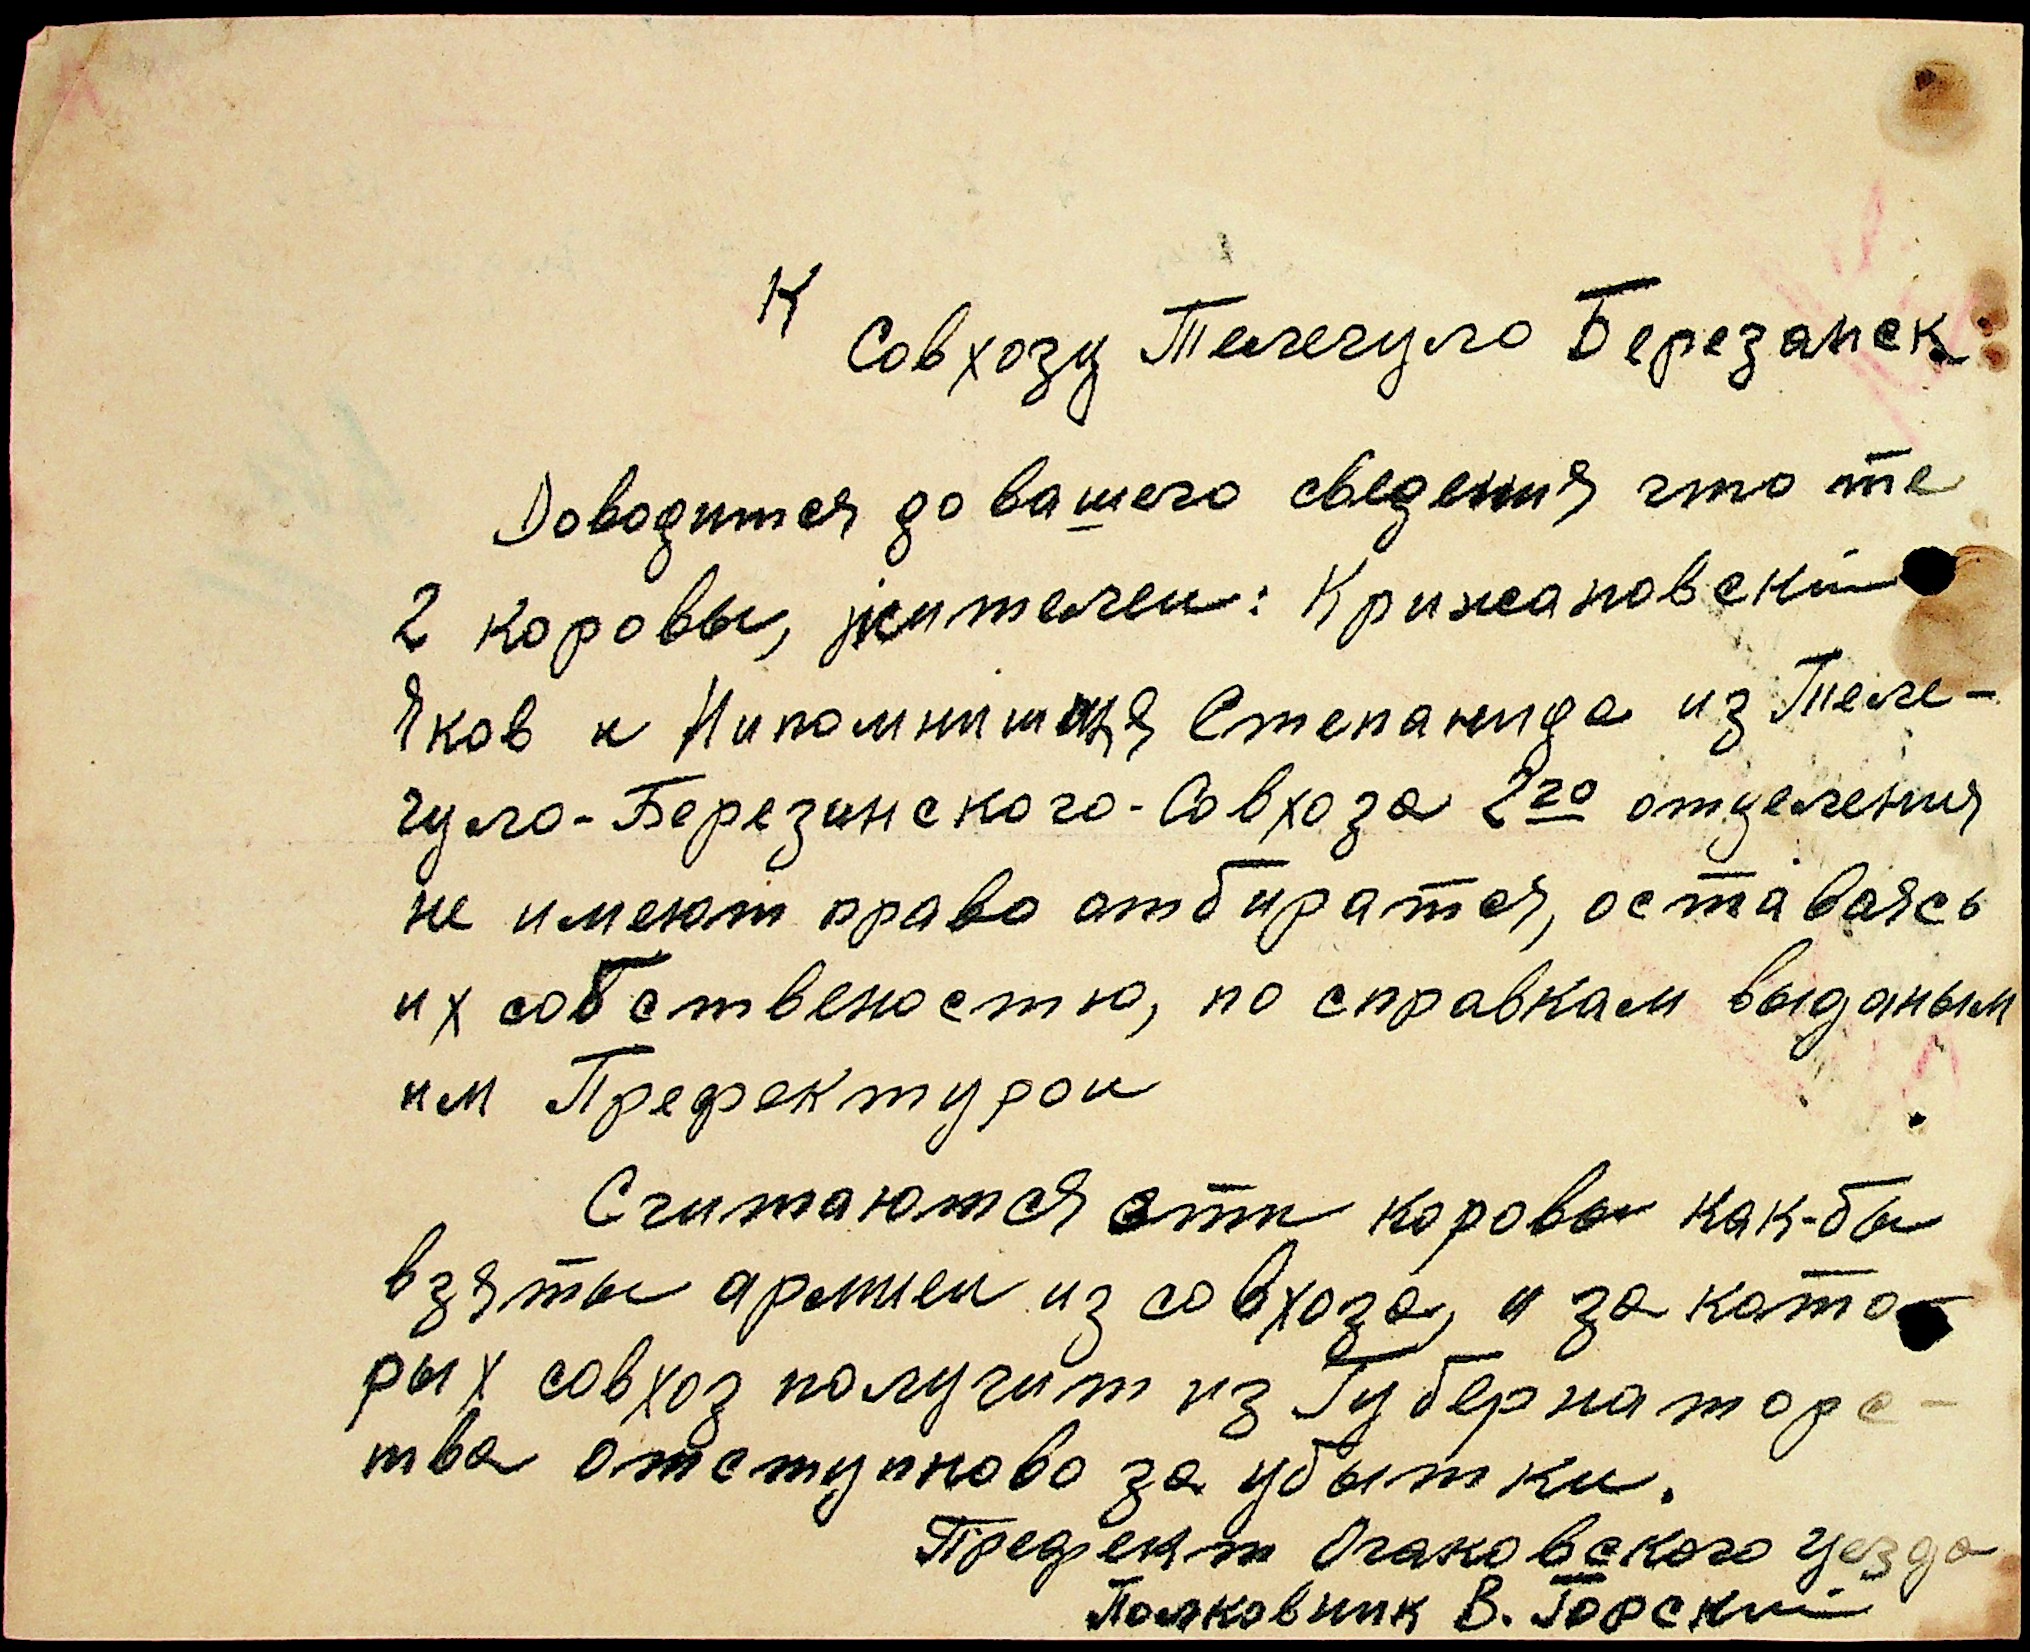 К
Совхозу Телегуло Березанск.
Доводится до вашего сведения что те
2 коровы, жителеи: Крижановскій
Яков и Нипомнишщя Степанида из Теле-
гуло-Березанского-Совхоза 2го отделения
не имеют право отбиратся, оставаясь
их собственостю, по справкам выданым
им Префектурои
Считаются эти коровы как-бы
взяты армиеи из совхоза, и за кото-
рых совхоз получит из Губернаторс-
тва отступново за убытки.
Префект Очаковского уезда
Полковник В. Горский